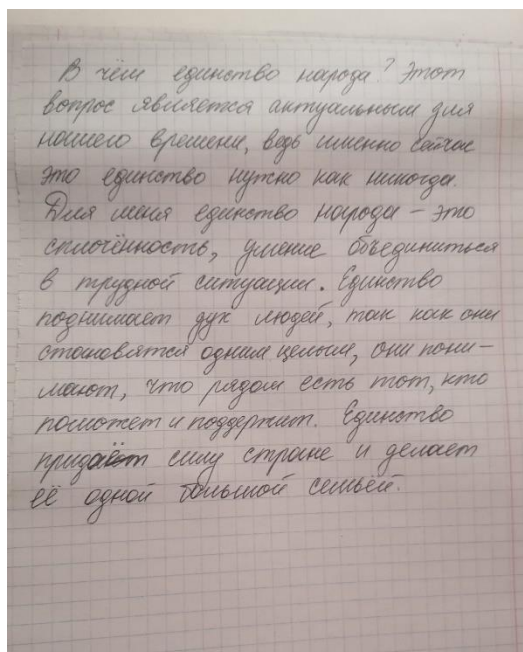 В чём единство народа? Этот
вопрос является актуальным для
нашего времени, ведь именно сейчас
это единство нужно как никогда.
Для меня единство народа – это
сплочённость, умение объединиться
в трудной ситуации. Единство
поднимает дух людей, так как они
становятся одним целым, они пони-
мают, что рядом есть тот, кто
поможет и поддержит. Единство
придаёт силу стране и делает
её одной большой семьёй.